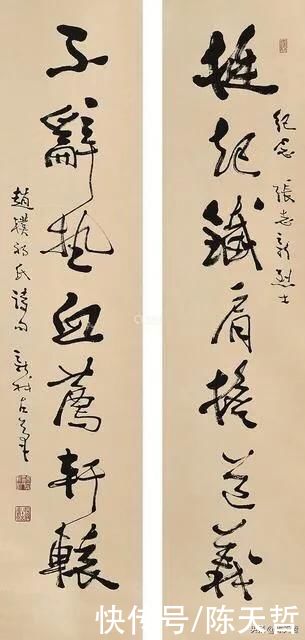 挺起鐵肩擔道義
紀念 張志新烈士
不辭熱血薦軒轅
趙樸初氏詩句 新我左筆
快传号/陈天哲